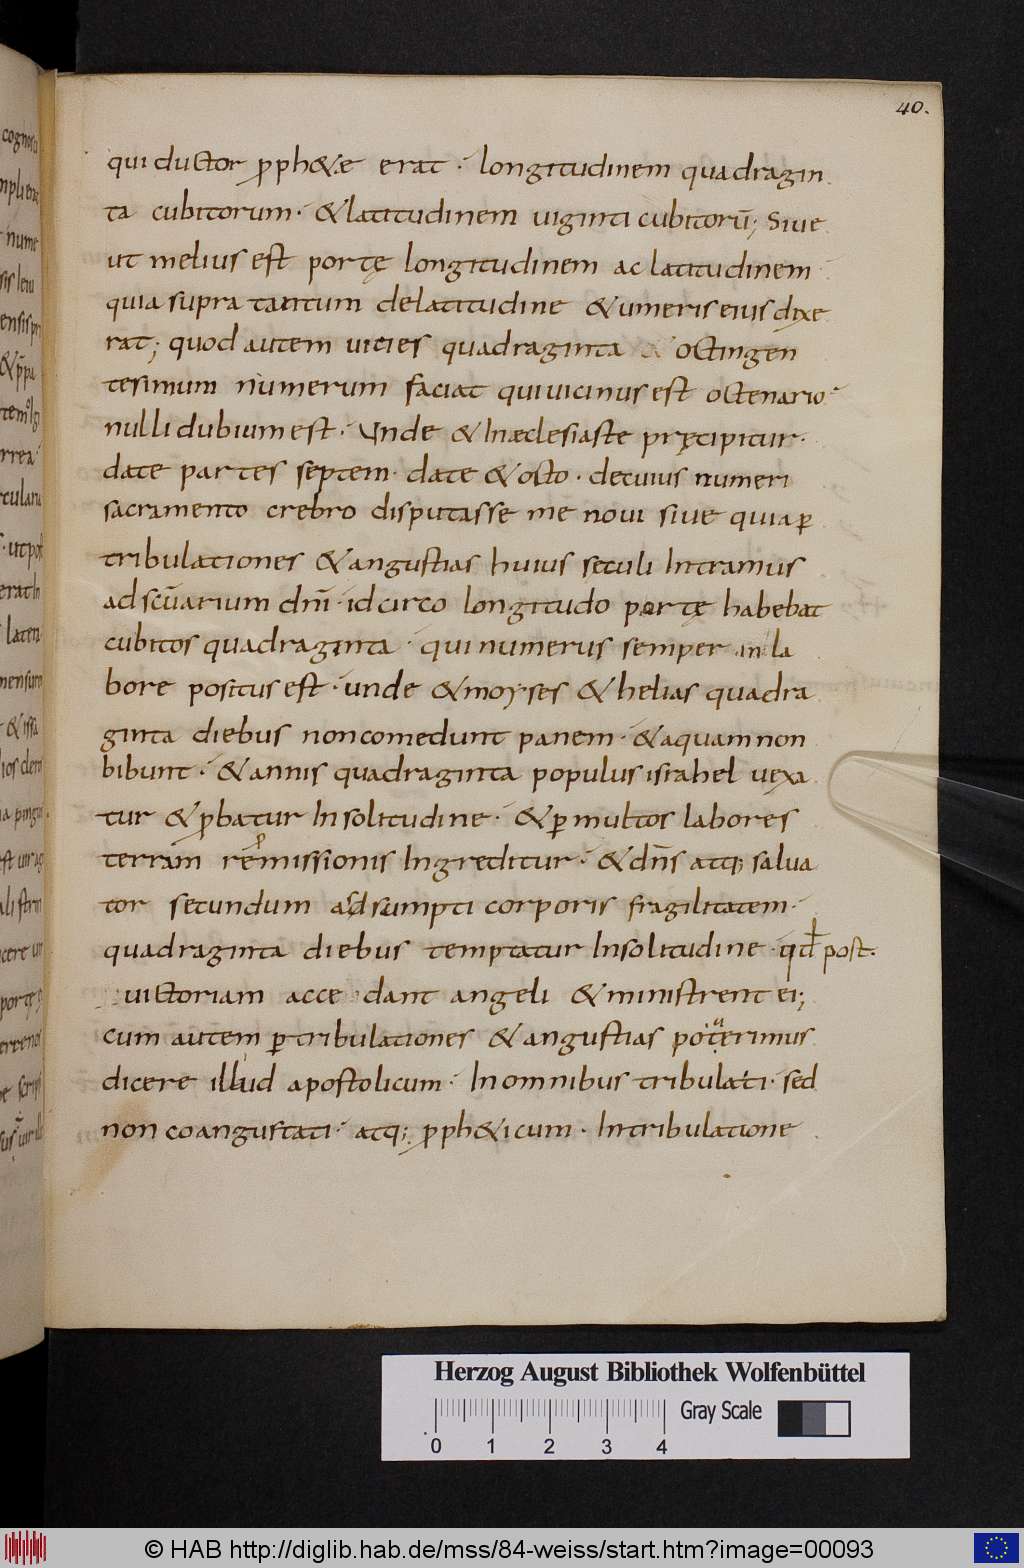 40.
qui ductor ꝓph&æ erat · longitudinem quadragin
ta cubitorum · &latitudinem uiginti cubitorū; Siue
ut melius est portę longitudinem ac latitudinem
quia supra tantum delatitudine &umeris eius dixe
rat; quod autem uicies quadraginta & octingen
tesimum numerum faciat qui uicinus est octenario
nulli dubium est · Unde & Inæclesiaste pręcipitur ·
date partes septem · date & octo · de cuius numeri
sacramento crebro disputasse me noui siue quia ꝑ
tribulationes &angustias huius seculi Intramus
ad scūarium dnī · idcirco longitudo portę habebat
cubitos quadraginta · qui numerus semper in la
bore positus est · unde &moyses &helias quadra
ginta diebus noncomedunt panem · &aquam non
bibunt · &annis quadraginta populus israhel uexa
tur &ꝓbatur Insolitudine · &ꝑ multos labores
terram repmissionis Ingreditur · & dn̄s atq; salua
tor secundum adsumpti corporis fragilitatem ·
quadraginta diebus temptatur Insolitudine · qđ post.
uictoriam accedant angeli & ministrent ei;
cum autem ꝑtribulationes &angustias poterimus
dicere illud apostolicum · Inomnibus tribulati · sed
non coangustati · atq; ꝓph&icum · Intribulatione
Herzog August Bibliothek Wolfenbüttel
Gray Scale
0 1 2 3 4
© HAB http://diglib.hab.de/mss/84-weiss/start.htm?image=00093